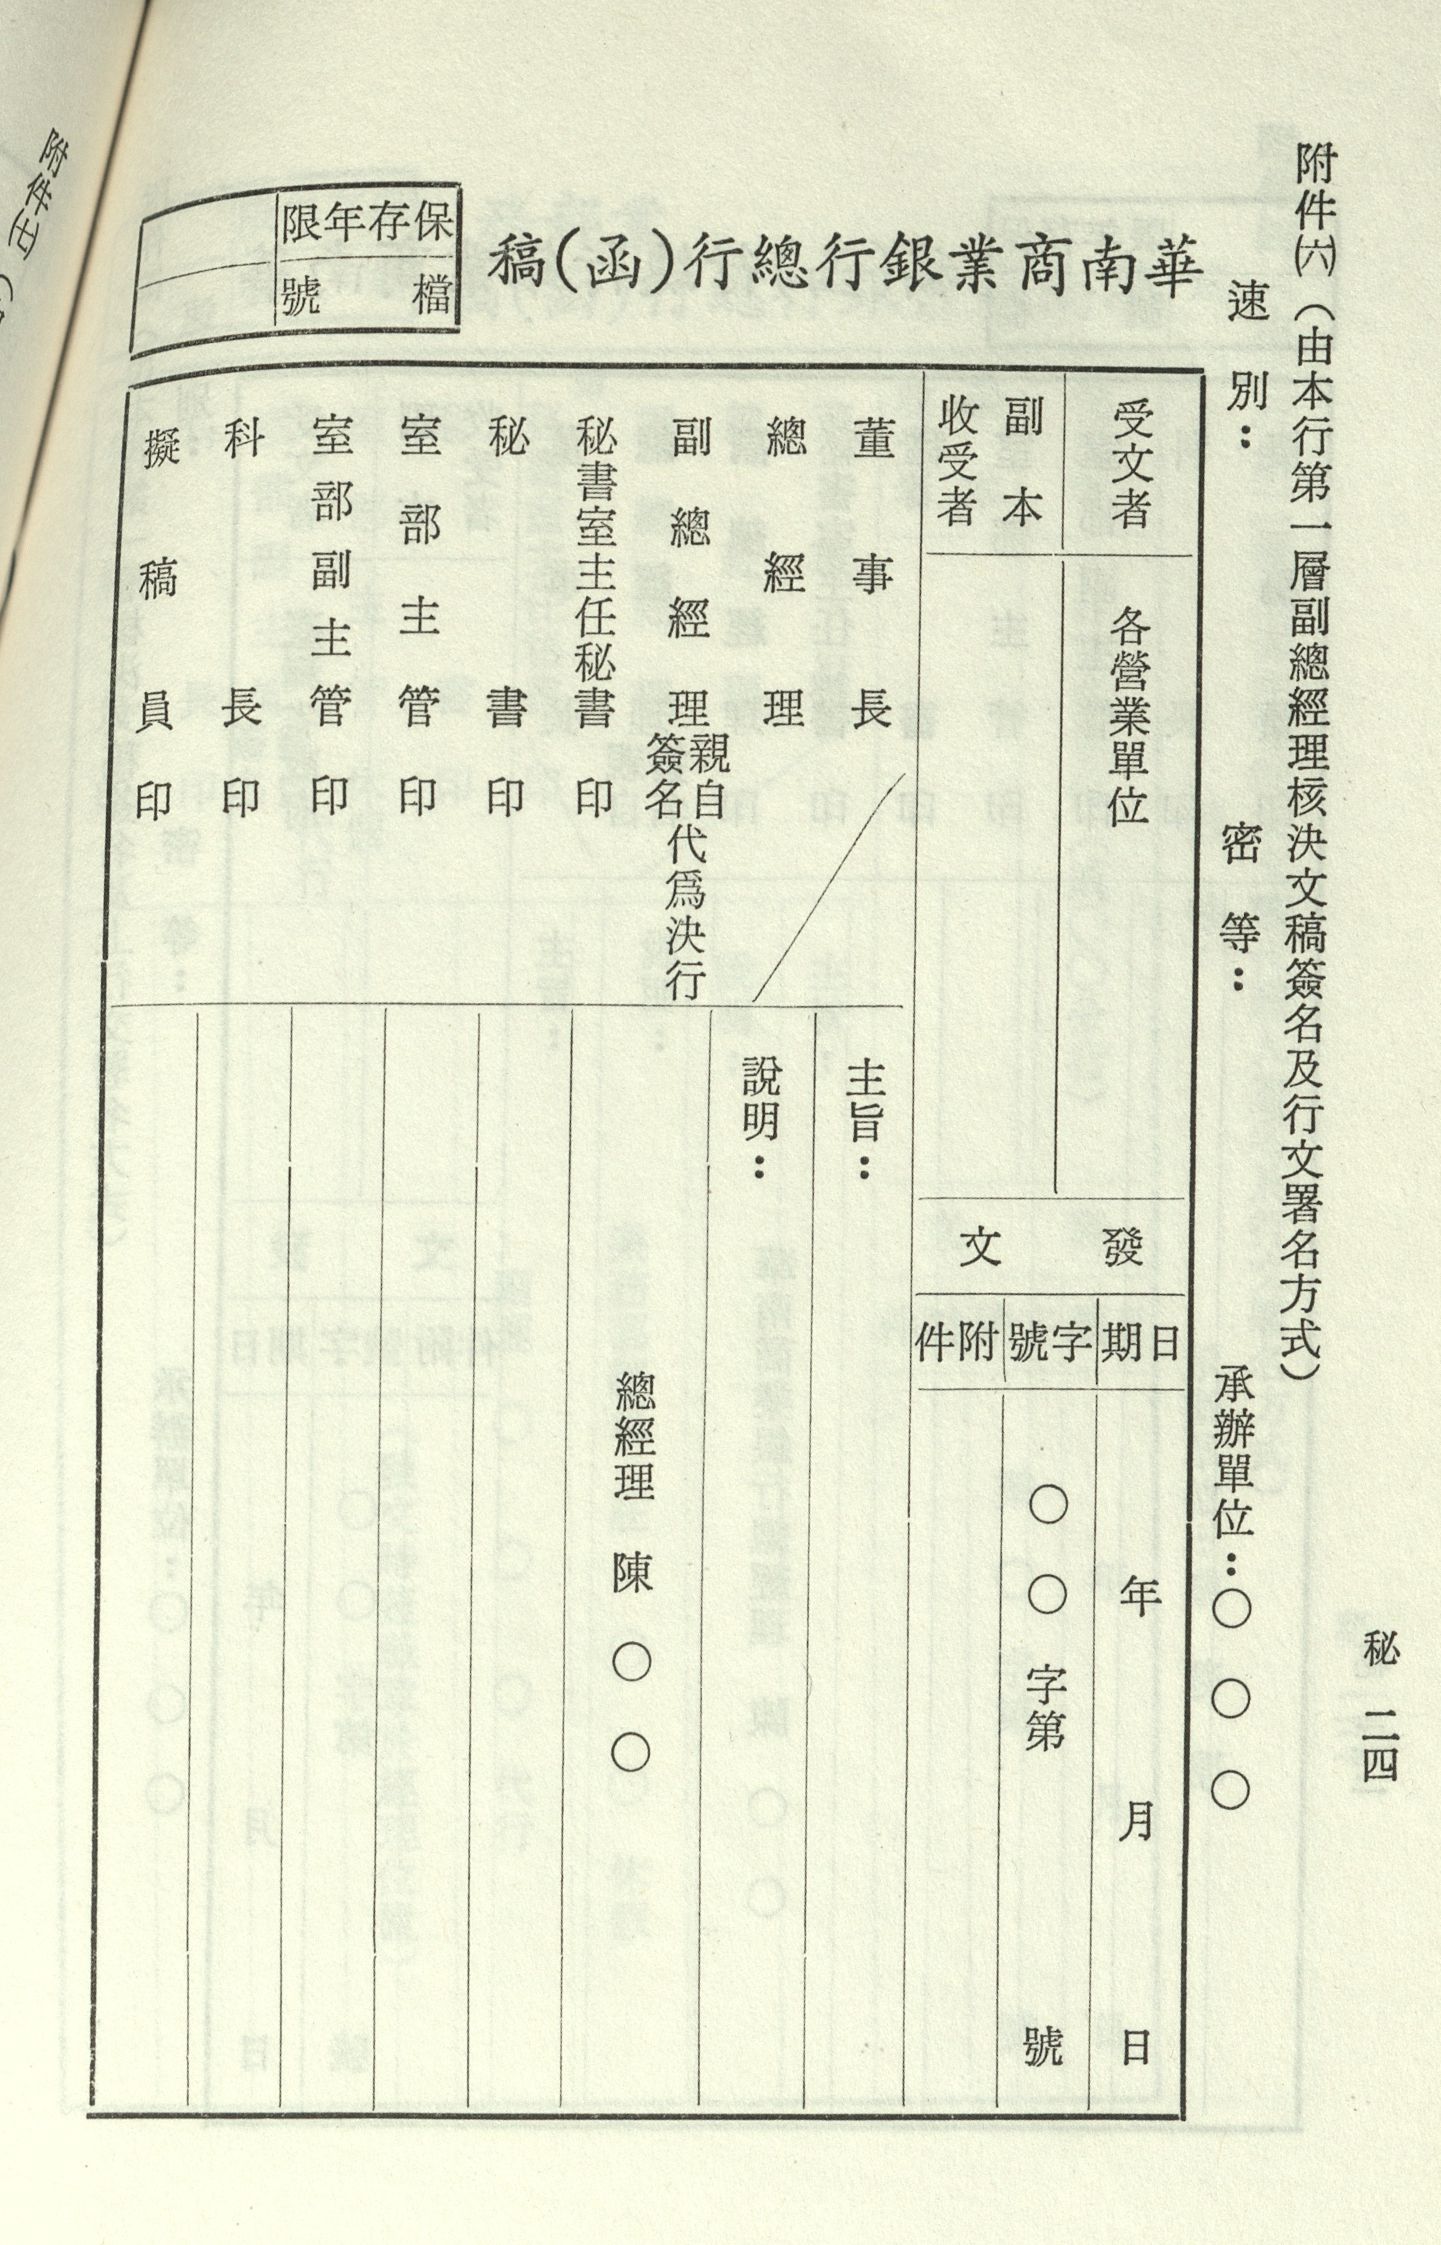 秘 二四
附件㈥（由本行第一層副總經理核決文稿簽名及行文署名方式）
速別：　密等：　承辦單位：○○○
華南商業銀行總行(函)稿
保存年限
檔號
受文者
各營業單位
副本
收受者
發文
日期
年　月　日
字號
○○字第　號
附件
董事長
總經理
副總經理親自簽名代爲決行
秘書室主任秘書印
秘書印
室部主管印
室部副主管印
科長印
擬稿員印
主旨：
說明：
總經理　陳○○
附件